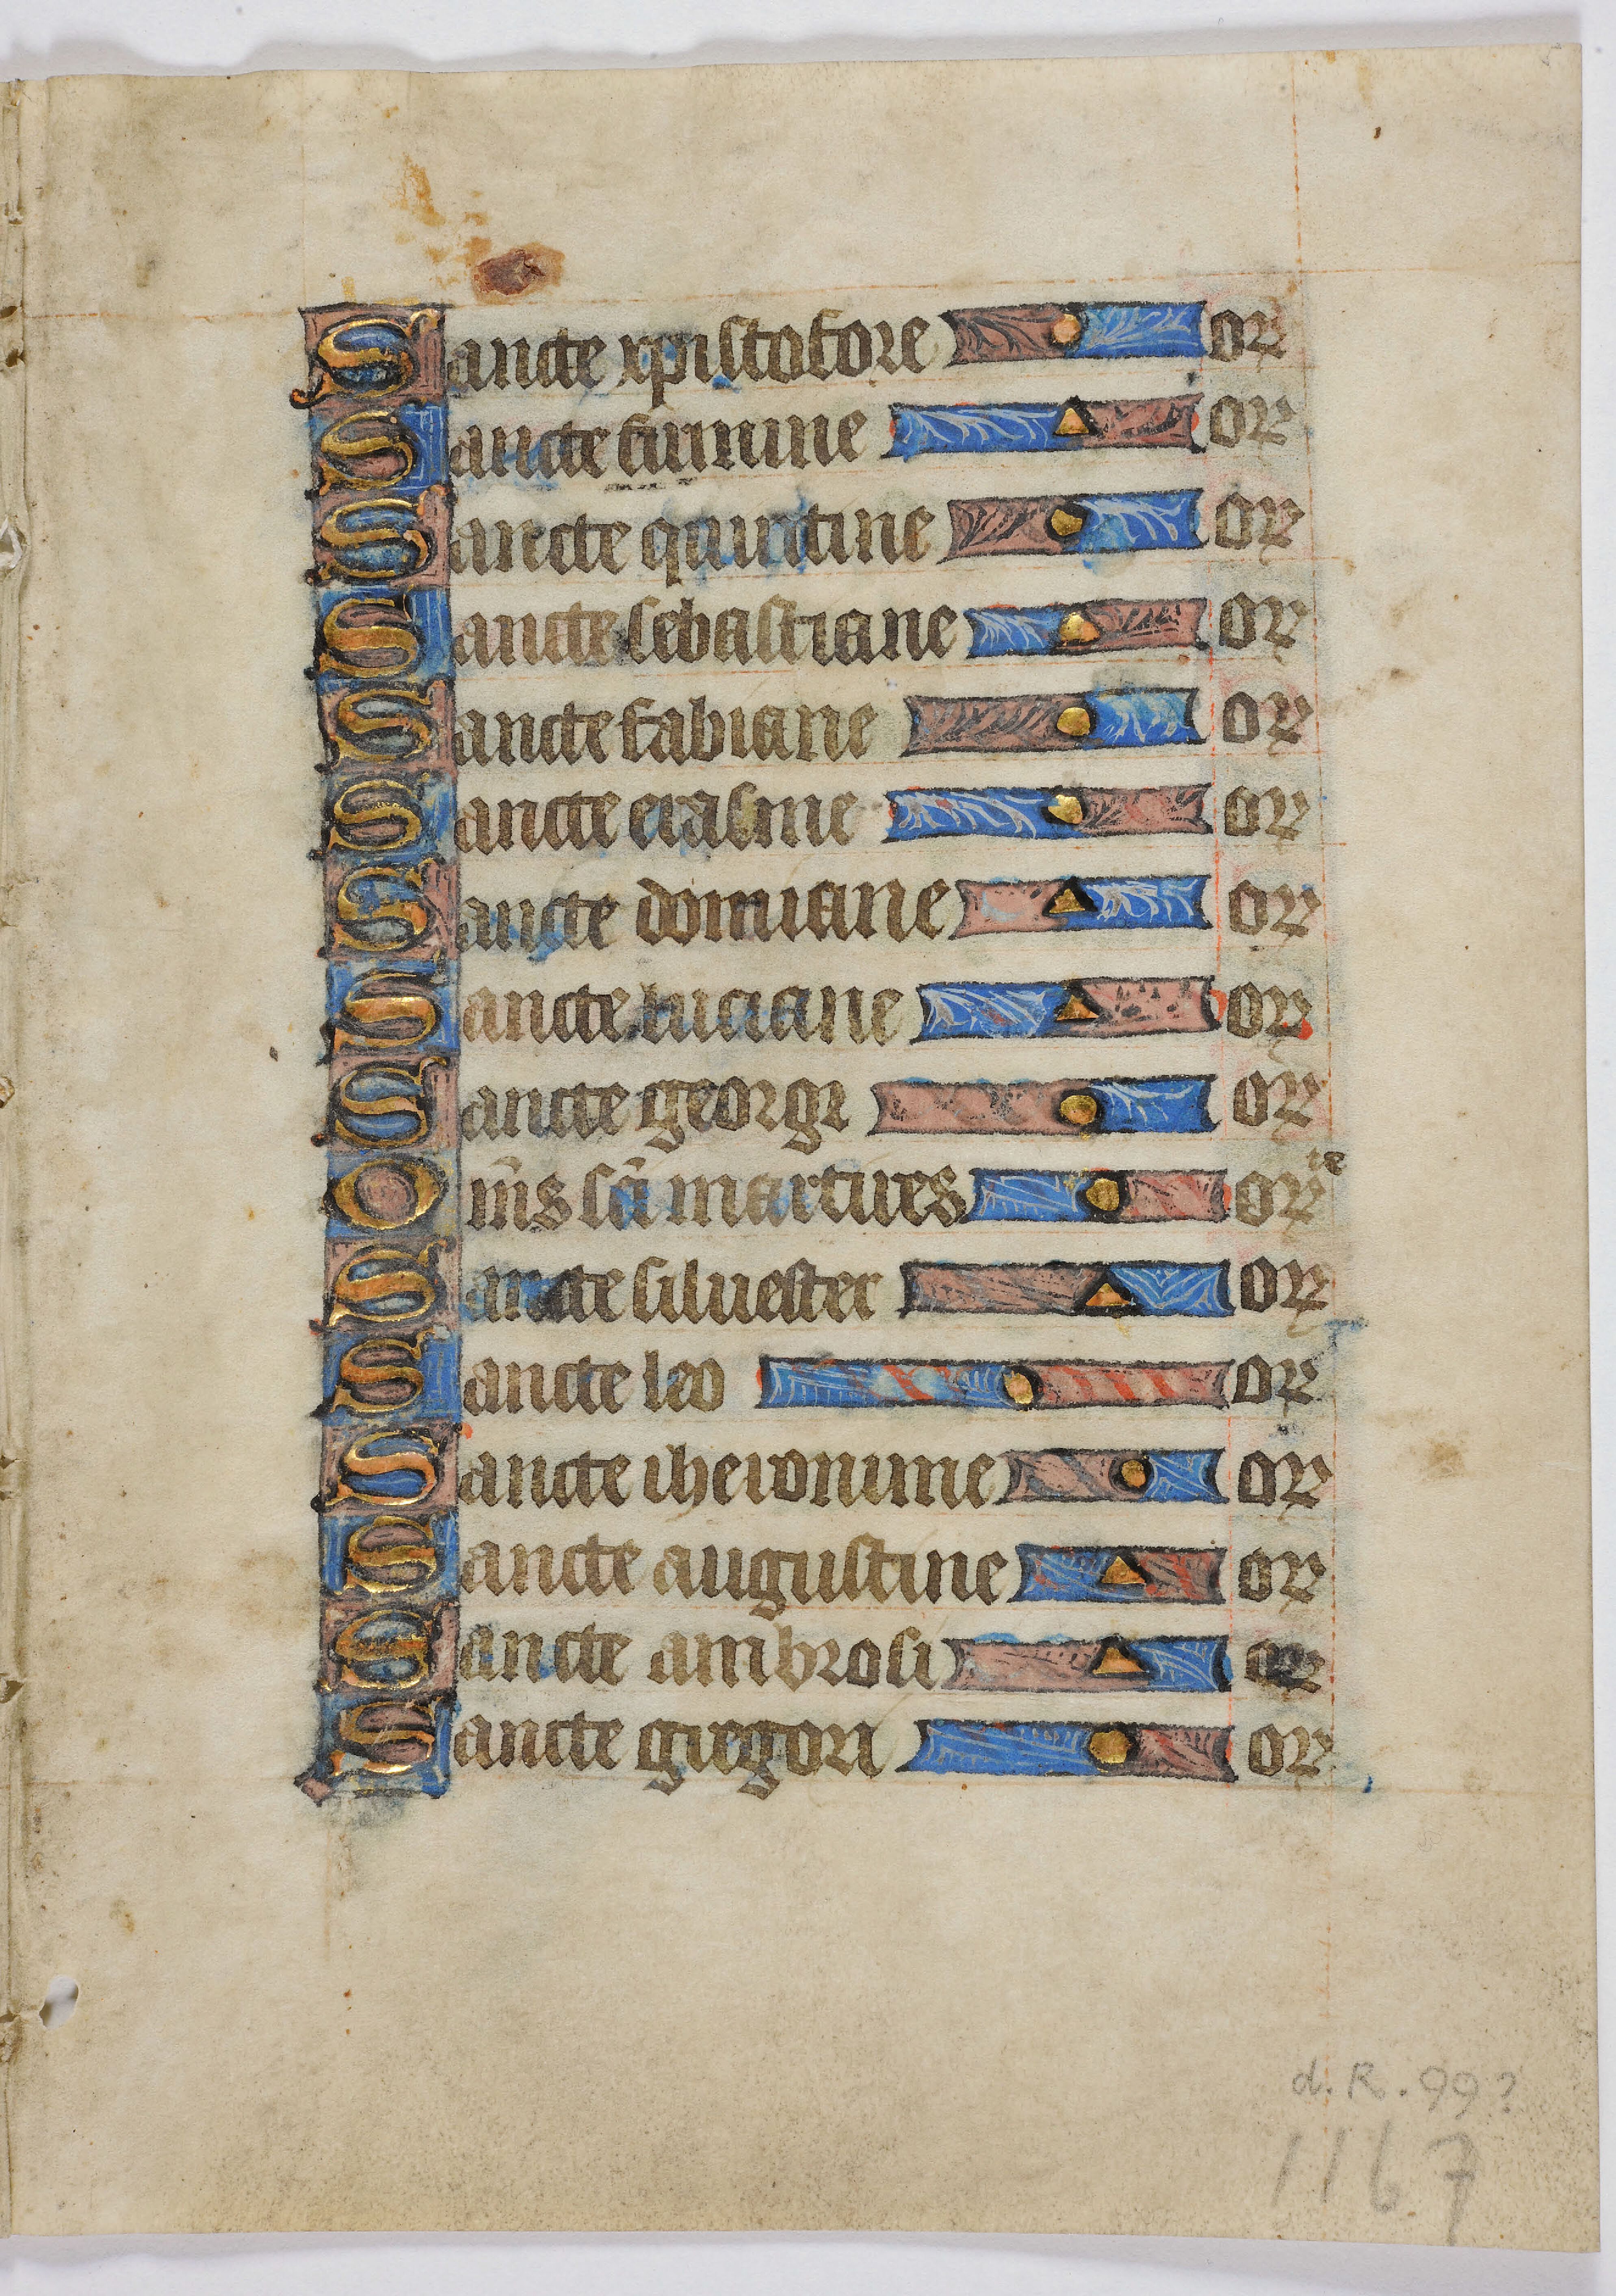 Sancte xpistofore or
Sancte firmine or
Sancte quintine or
Sancte sebastiane or
Sancte fabiane or
Sancte erasme or
Sancte domiane or
Sancte luciane or
Sancte georgi or
Om̄s sc̄i martires orte
Sancte siluester or
Sancte leo or
Sancte iheronime or
Sancte augustine or
Sancte ambrosi or
Sancte gregori or
d. R. 99?
1167